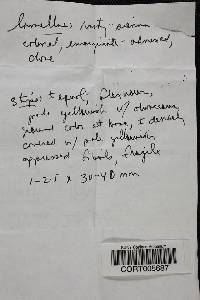 lamellae, rusty-
colored, emarginate-adnexed,
close
stipe: ± equal,
pale yellowish w/
color at base, ± densely
covered w/ pale yellowish
appressed fibrils, fragile
1-2.5 x 30-40 mm
CORT005687